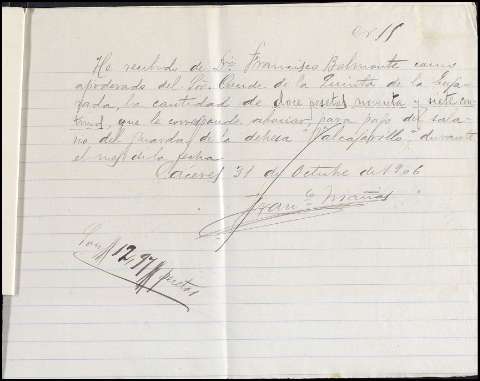 Nº 15
He recibido de Dn. Francisco Belmonte como
apoderado del Sor. Conde de la Quinta de la Enja-
rada, la cantidad de doce pesetas noventa y siete cen-
timos, que le corresponde abonar para pago del sala-
rio del guarda de la dehesa "Valcajarillo", durante
el mes de la fecha.
Caceres 31 de Octubre de 1906
Franco Mañas
Son # 12,97 # pesetas